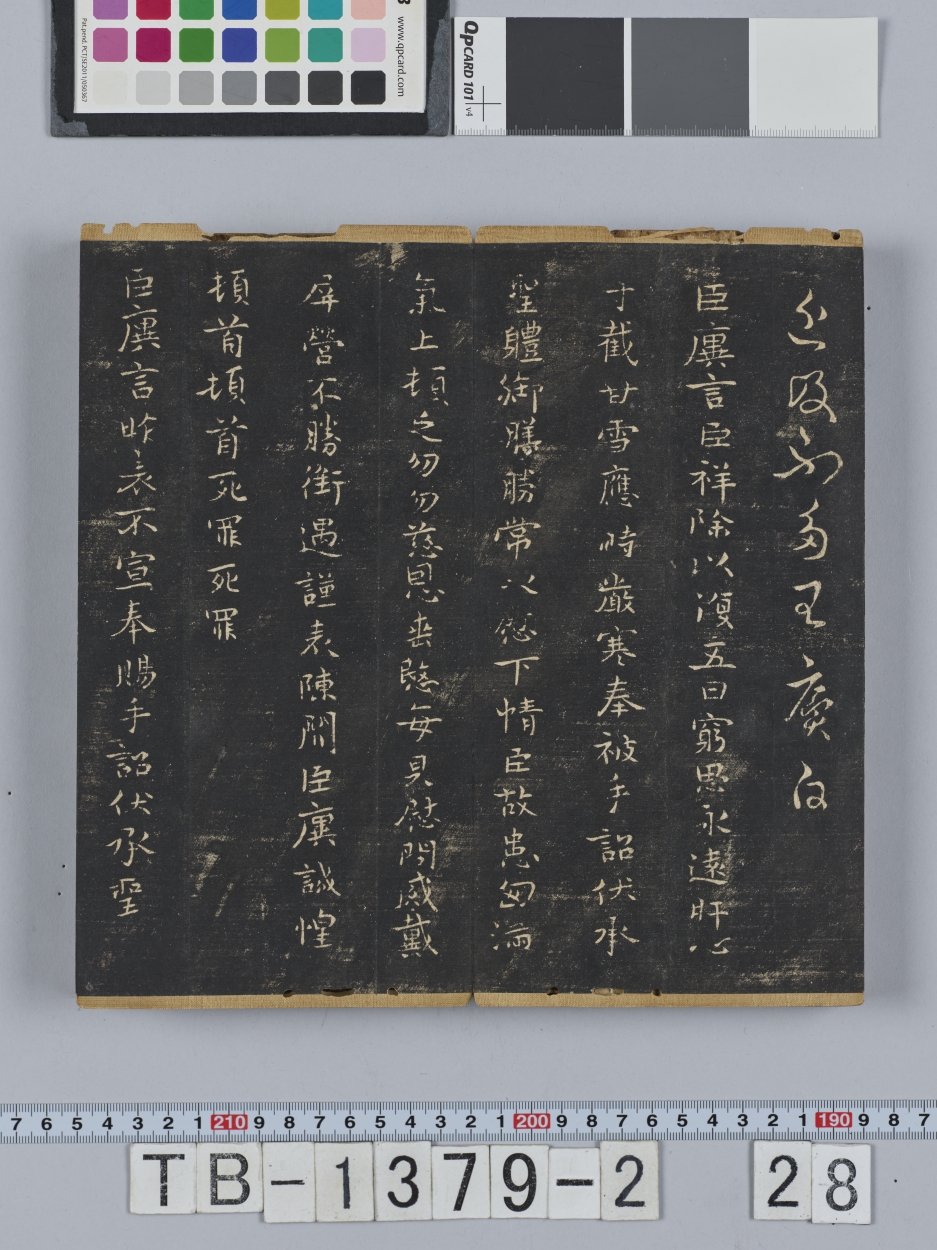 Pat.pend. PCT/SE2011/050367
www.qpcard.com
QPCARD 101 v4
不多王廙白
臣廙言臣祥除以復五日窮思永遠肝心
寸截甘雪應時嚴寒奉被手詔伏承
聖體御膳勝常以慰下情臣故患匈滿
氣上頓乏勿勿慈恩垂愍每見慰問感戴
屏營不勝銜遇謹表陳聞臣廙誠惶
頓首頓首死罪死罪
臣廙言昨表不宣奉賜手詔伏承聖
7 6 5 4 3 2 1 210 9 8 7 6 5 4 3 2 1 200 9 8 7 6 5 4 3 2 1 190 9 8 7
TB-1379-2 28